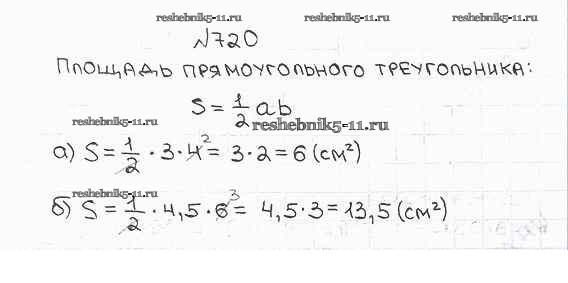 reshebnik5-11.ru reshebnik5-11.ru reshebnik5-11.ru
№720
ПЛОЩАДЬ ПРЯМОУГОЛЬНОГО ТРЕУГОЛЬНИКА:
S = 1/2 ab
reshebnik5-11.ru reshebnik5-11.ru
а) S = 1/2 · 3 · 4² = 3 · 2 = 6 (см²)
reshebnik5-11.ru
б) S = 1/2 · 4,5 · 6³ = 4,5 · 3 = 13,5 (см²)